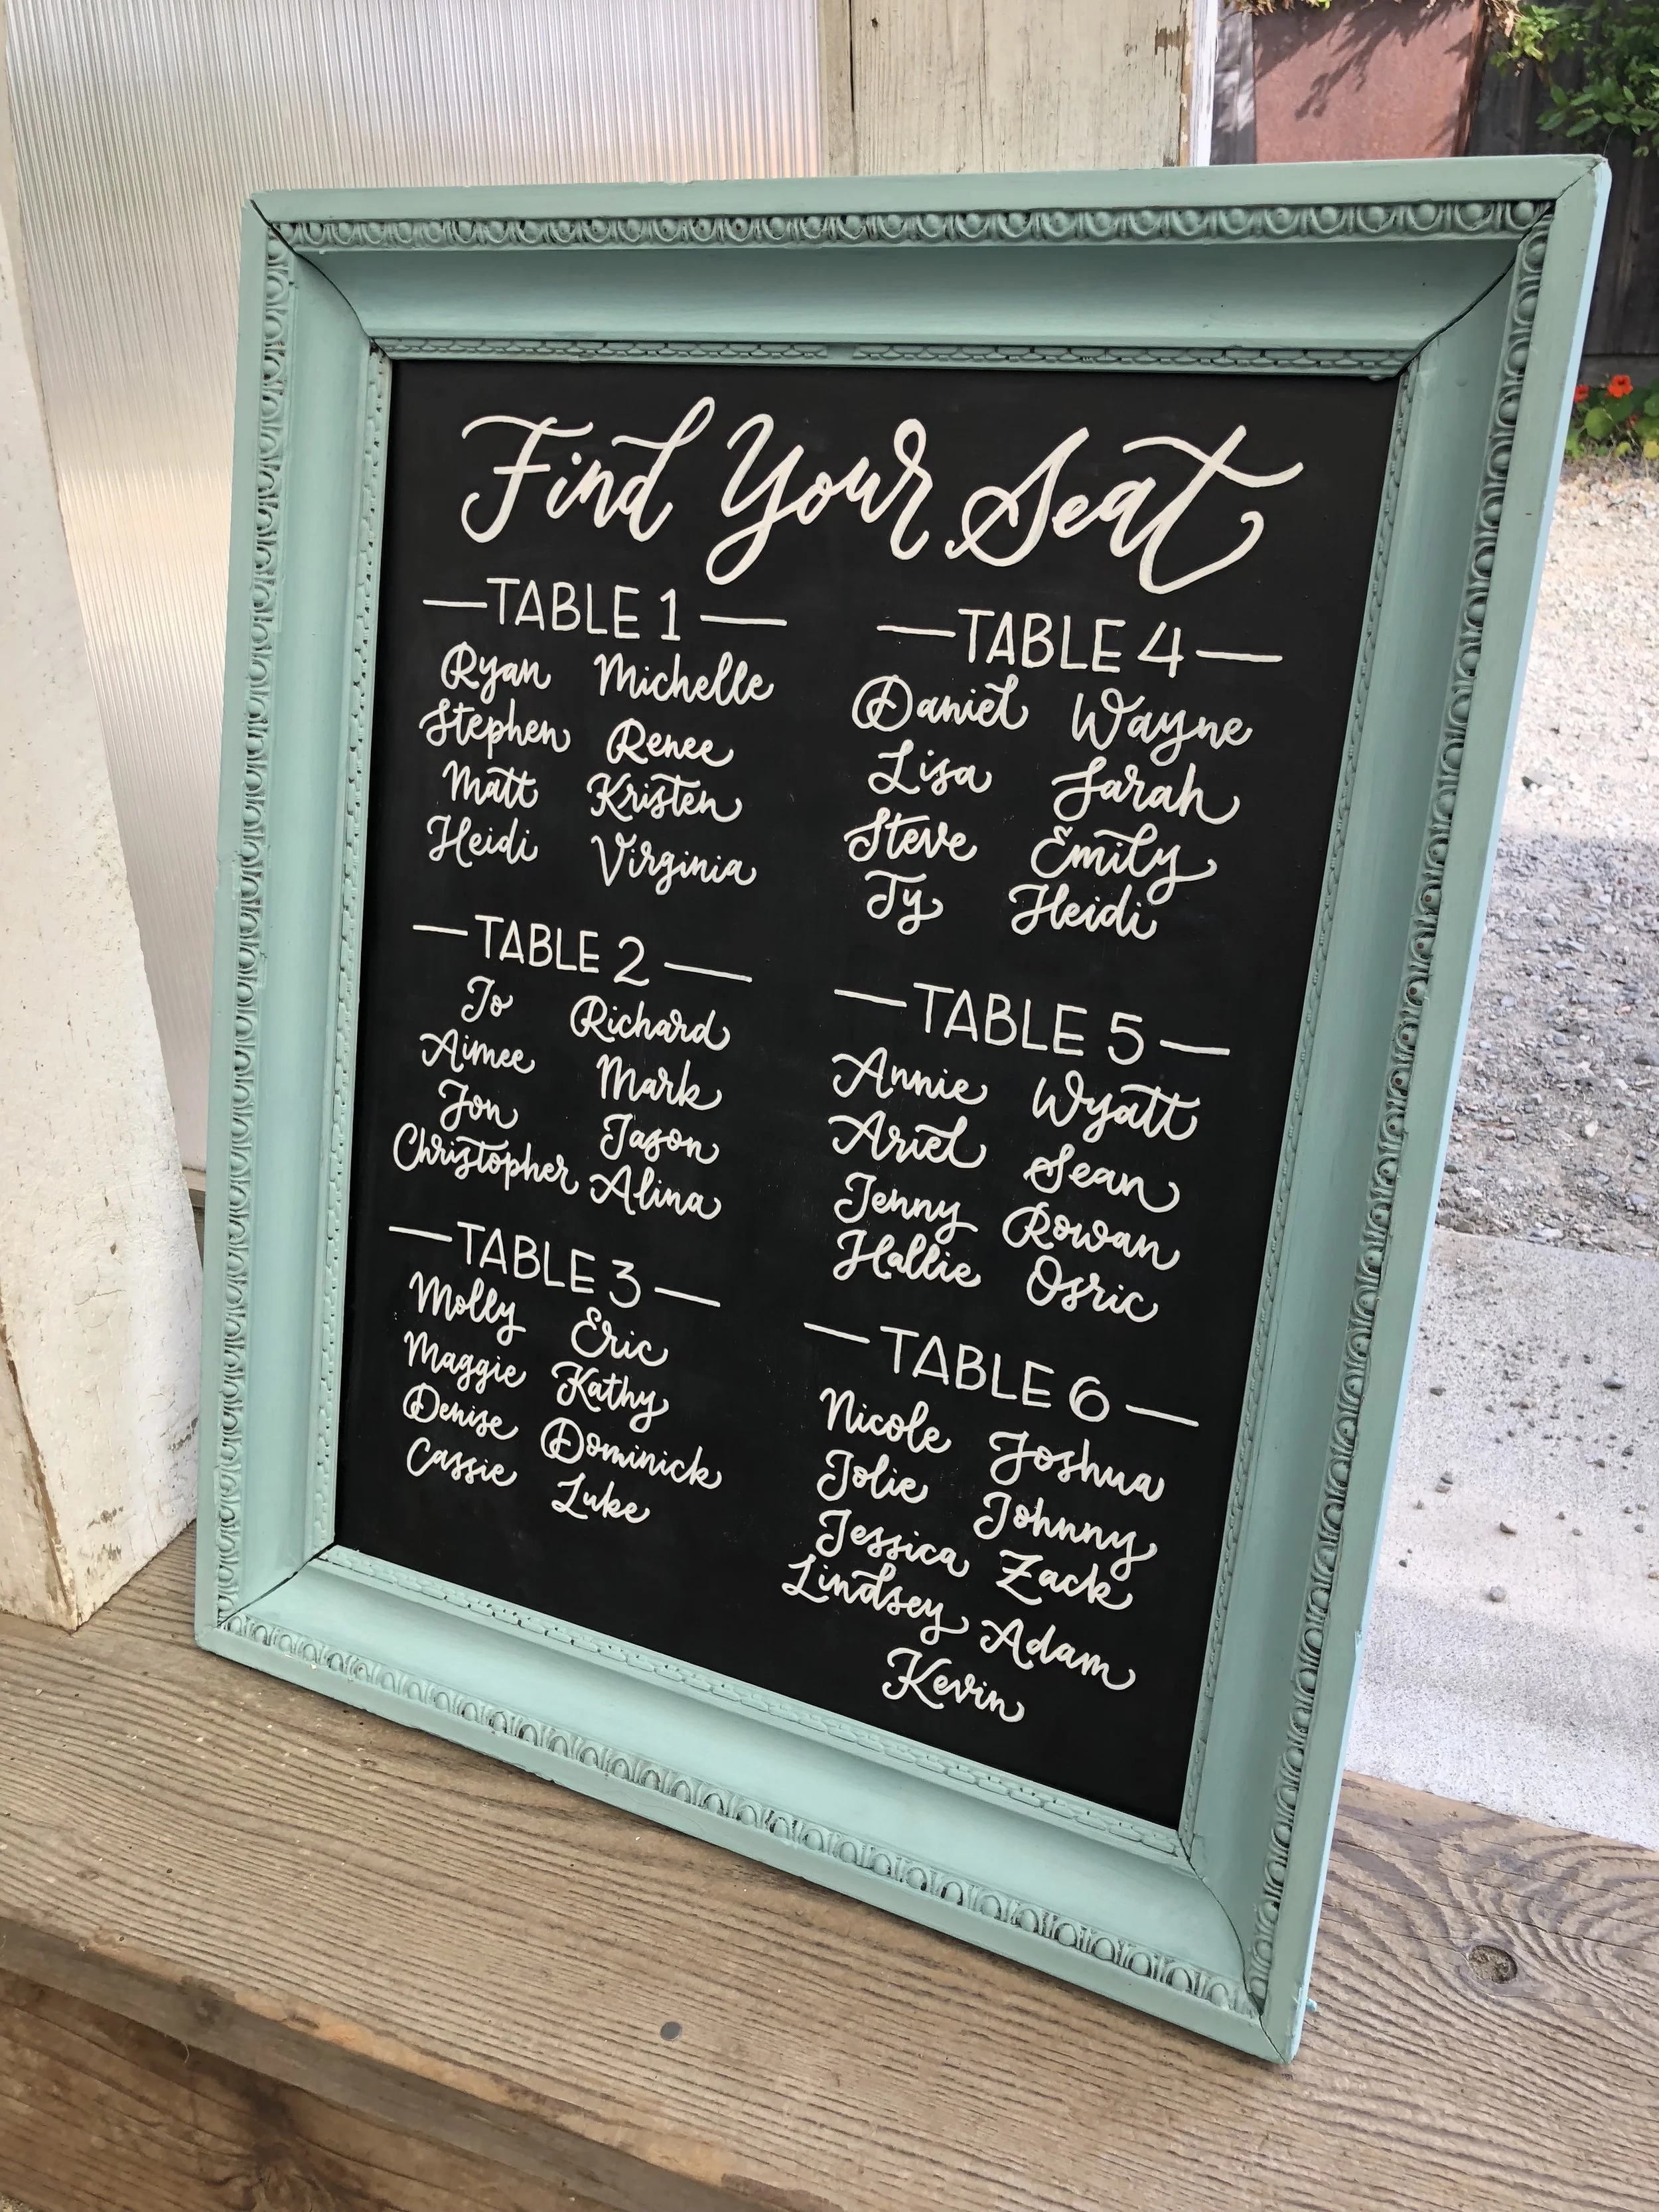 Find Your Seat
TABLE 1
Ryan Michelle
Stephen Renee
Matt Kristen
Heidi Virginia
TABLE 2
Jo Richard
Aimee Mark
Jon Jason
Christopher Alina
TABLE 3
Molly Eric
Maggie Kathy
Denise Dominick
Cassie Luke
TABLE 4
Daniel Wayne
Lisa Sarah
Steve Emily
Ty Heidi
TABLE 5
Annie Wyatt
Ariel Sean
Jenny Rowan
Hallie Osric
TABLE 6
Nicole Joshua
Jolie Johnny
Jessica Zack
Lindsey Adam
Kevin